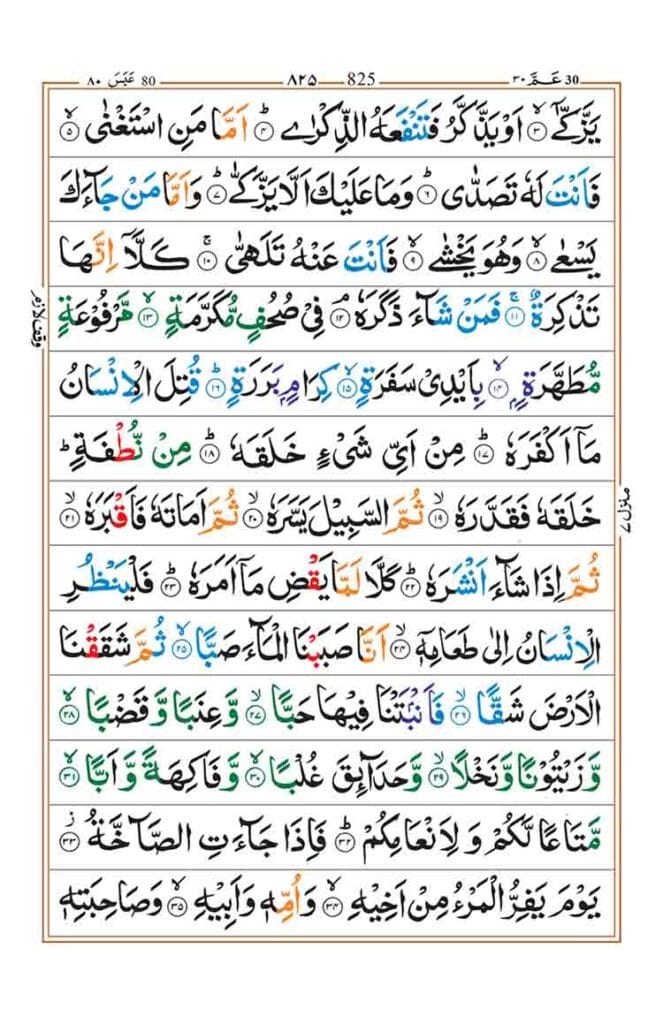 عَمَّ ٣٠ 30 ٨٢٥ 825 عَبَسَ ٨٠ 80
يَزَّكّٰۤى ۙ﴿۳﴾ اَوْ يَذَّكَّرُ فَتَنْفَعَهُ الذِّكْرٰى ؕ﴿۴﴾ اَمَّا مَنِ اسْتَغْنٰى ۙ﴿۵﴾
فَاَنْتَ لَهٗ تَصَدّٰى ؕ﴿۶﴾ وَمَا عَلَيْكَ اَلَّا يَزَّكّٰى ؕ﴿۷﴾ وَاَمَّا مَنْ جَآءَكَ
يَسْعٰى ۙ﴿۸﴾ وَهُوَ يَخْشٰى ۙ﴿۹﴾ فَاَنْتَ عَنْهُ تَلَهّٰى ۚ﴿۱۰﴾ كَلَّاۤ اِنَّهَا
تَذْكِرَةٌ ۚ﴿۱۱﴾ فَمَنْ شَآءَ ذَكَرَهٗ ۘ﴿۱۲﴾ فِىْ صُحُفٍ مُّكَرَّمَةٍ ۙ﴿۱۳﴾ مَّرْفُوْعَةٍ
وقف لازم
مُّطَهَّرَةٍۭ ۙ﴿۱۴﴾ بِاَيْدِىْ سَفَرَةٍ ۙ﴿۱۵﴾ كِرَامٍۭ بَرَرَةٍ ؕ﴿۱۶﴾ قُتِلَ الْاِنْسَانُ
مَاۤ اَكْفَرَهٗ ؕ﴿۱۷﴾ مِنْ اَىِّ شَىْءٍ خَلَقَهٗ ؕ﴿۱۸﴾ مِنْ نُّطْفَةٍ ؕ
خَلَقَهٗ فَقَدَّرَهٗ ۙ﴿۱۹﴾ ثُمَّ السَّبِيْلَ يَسَّرَهٗ ۙ﴿۲۰﴾ ثُمَّ اَمَاتَهٗ فَاَقْبَرَهٗ ۙ﴿۲۱﴾
منزل ۷
ثُمَّ اِذَا شَآءَ اَنْشَرَهٗ ؕ﴿۲۲﴾ كَلَّا لَمَّا يَقْضِ مَاۤ اَمَرَهٗ ؕ﴿۲۳﴾ فَلْيَنْظُرِ
الْاِنْسَانُ اِلٰى طَعَامِهٖۤ ۙ﴿۲۴﴾ اَنَّا صَبَبْنَا الْمَآءَ صَبًّا ۙ﴿۲۵﴾ ثُمَّ شَقَقْنَا
الْاَرْضَ شَقًّا ۙ﴿۲۶﴾ فَاَنْۢبَتْنَا فِيْهَا حَبًّا ۙ﴿۲۷﴾ وَّعِنَبًا وَّقَضْبًا ۙ﴿۲۸﴾
وَّزَيْتُوْنًا وَّنَخْلًا ۙ﴿۲۹﴾ وَّحَدَآئِقَ غُلْبًا ۙ﴿۳۰﴾ وَّفَاكِهَةً وَّاَبًّا ۙ﴿۳۱﴾
مَّتَاعًا لَّكُمْ وَلِاَنْعَامِكُمْ ؕ﴿۳۲﴾ فَاِذَا جَآءَتِ الصَّآخَّةُ ۫﴿۳۳﴾
يَوْمَ يَفِرُّ الْمَرْءُ مِنْ اَخِيْهِ ۙ﴿۳۴﴾ وَاُمِّهٖ وَاَبِيْهِ ۙ﴿۳۵﴾ وَصَاحِبَتِهٖ